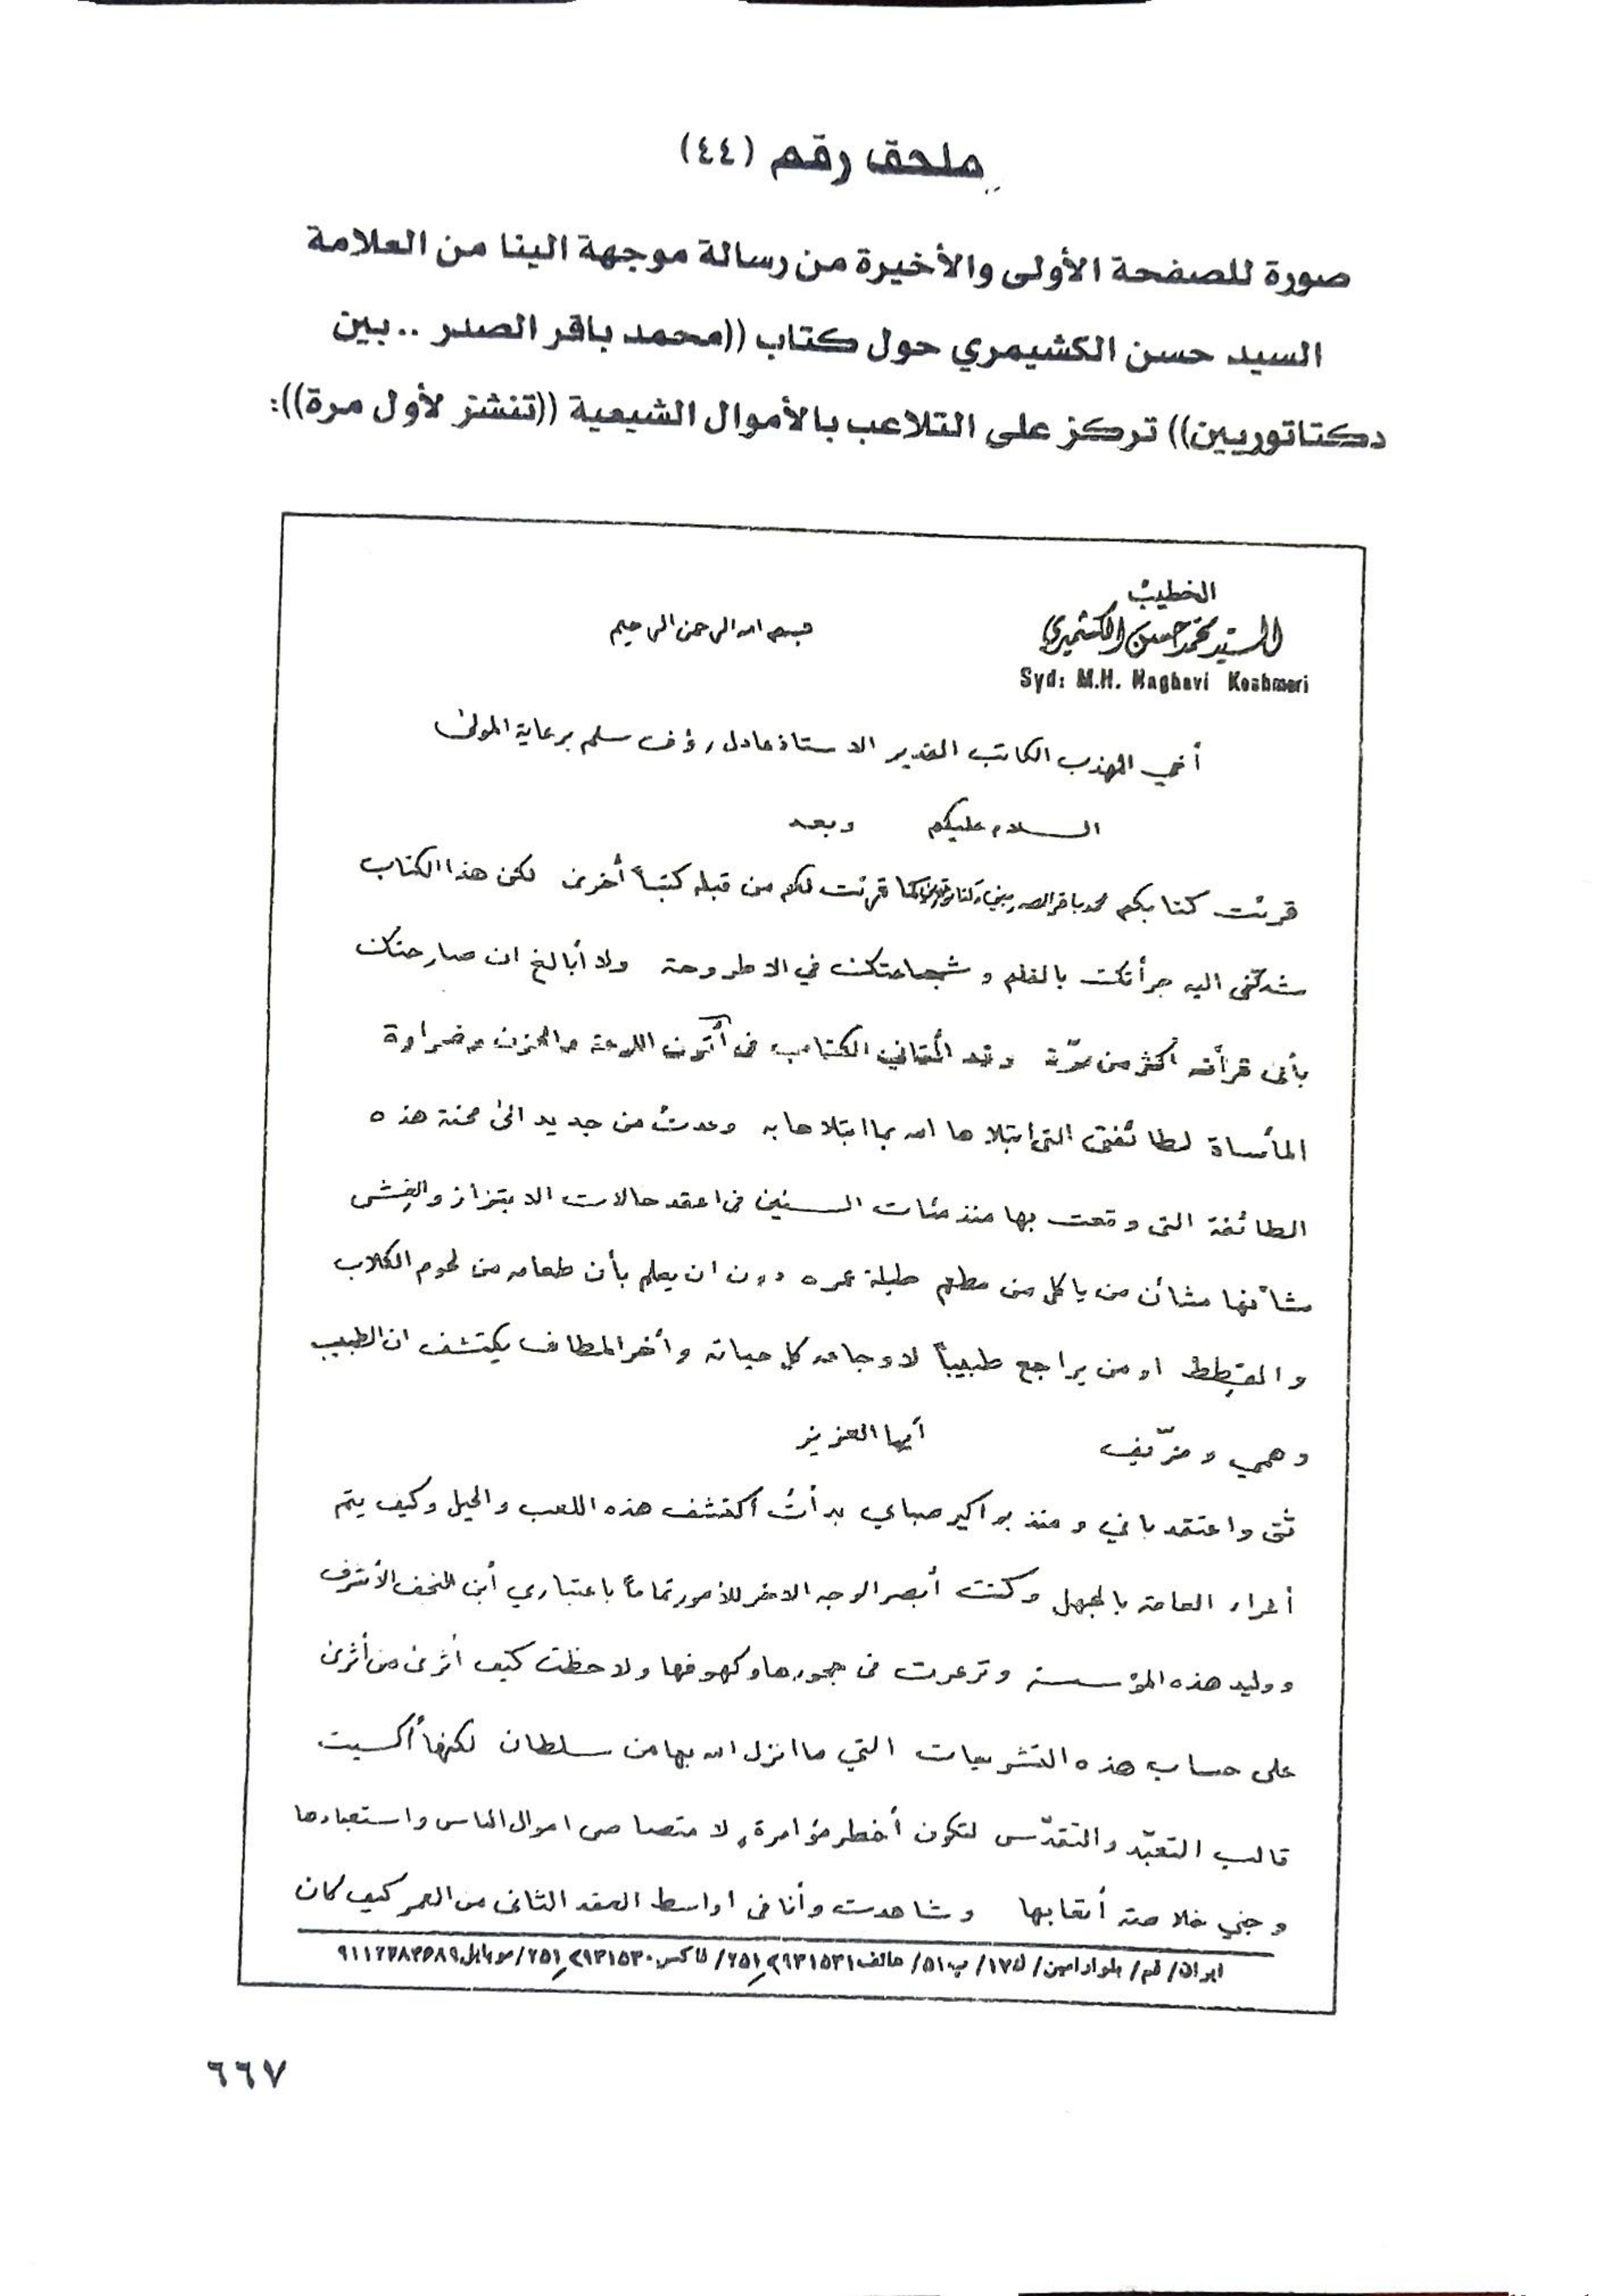 ملحق رقم (٤٤)
صورة للصفحة الأولى والأخيرة من رسالة موجهة الينا من العلامة
السيد حسن الكشيمري حول كتاب ((محمد باقر الصدر .. بين
دكتاتوريين)) تركز على التلاعب بالأموال الشيعية ((تنشر لأول مرة)):
الخطيب
السيد محمد حسن الكشميري
بسم الله الرحمن الرحيم
Syd: M.H. Naghavi Keshmeri
أخي المهذب الكاتب القدير الاستاذ عادل رؤف سلم برعاية المولى
السلام عليكم وبعد
قرئت كتابكم محمد باقر الصدر بين دكتاتوريتين كما قرئت لكم من قبله كتباً أخرى لكن هذا الكتاب
شدّني اليه جرأتك بالقلم وشجاعتك في الاطروحة ولا أبالغ ان صارحتك
بأني قرأته أكثر من مرّة وقد ألقاني الكتاب في أتون اللوعة والحزن وضراوة
المأساة لطائفتي التي ابتلاها الله بما ابتلاها به وعدتُ من جديد الى محنة هذه
الطائفة التي وقعت بها منذ مئات السنين في اعقد حالات الابتزاز والغِش
شأنها شأن من ياكل من مطعم طيلة عمره دون ان يعلم بأن طعامه من لحوم الكلاب
والقِطط او من يراجع طبيباً لاوجاعه كل حياته وأخر المطاف يكتشف ان الطبيب
وهمي ومزّيف أيها العزيز
ثق واعتقد باني ومنذ بواكير صباي بدأتُ أكتشف هذه اللعب والحيل وكيف يتم
أغراء العامة بالجهل وكنت أبصر الوجه الاخر للأمور تماماً باعتباري أبن النجف الأشرف
ووليد هذه المؤسسة وترعرت في جحورها وكهوفها ولاحظت كيف أثرى من أثرى
على حساب هذه التشريعات التي ما انزل الله بها من سلطان لكنها أكسيت
قالب التعبّد والتقدّس لتكون أخطر مؤامرة لامتصاص اموال الناس واستعبادها
وجني خلاصة أتعابها وشاهدت وأنا في اواسط العقد الثاني من العمر كيف كان
ايران/ قم/ بلوار امين/ ك١٧/ پ٥١/ هاتف ٢٩٣١٥٣١-٢٥١/ فاكس ٢٩٣١٥٣٠-٢٥١/ موبايل
٦٦٧